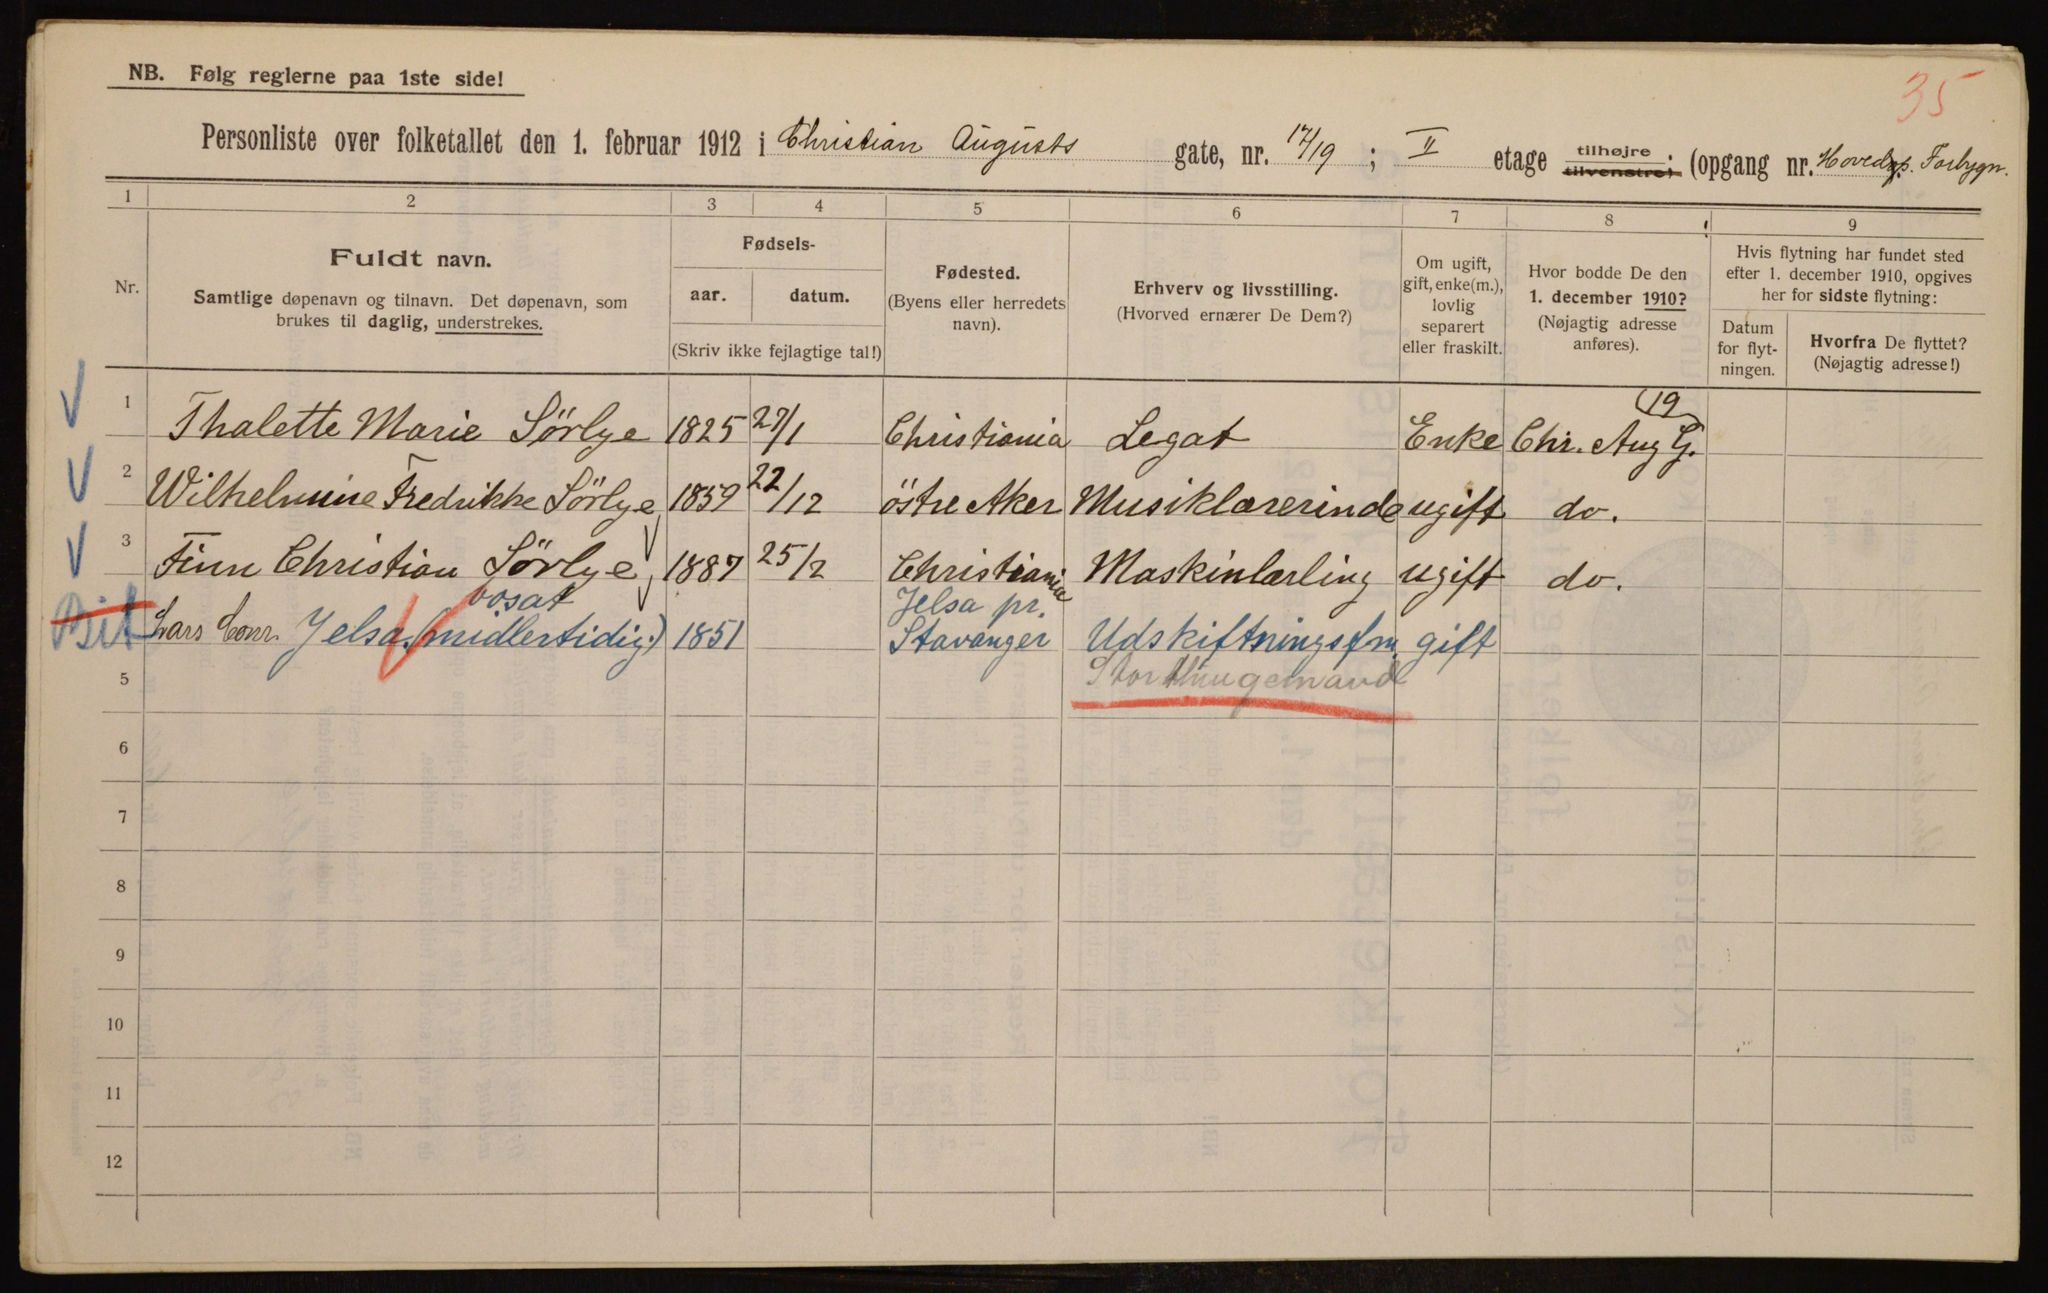 35
NB. Følg reglerne paa 1ste side!
Personliste over folketallet den 1. februar 1912 i Christian Augusts gate, nr. 17/19; II etage tilhøjre tilvenstre) (opgang nr. Hovedop. Forbygn.
1 2 3 4 5 6 7 8 9
Nr.
Fuldt navn.
Samtlige døpenavn og tilnavn. Det døpenavn, som
brukes til daglig, understrekes.
Fødsels-
aar. datum.
(Skriv ikke fejlagtige tal!)
Fødested.
(Byens eller herredets
navn).
Erhverv og livsstilling.
(Hvorved ernærer De Dem?)
Om ugift,
gift, enke(m.),
lovlig
separert
eller fraskilt.
Hvor bodde De den
1. december 1910?
(Nøjagtig adresse
anføres).
Hvis flytning har fundet sted
efter 1. december 1910, opgives
her for sidste flytning:
Datum
for flyt-
ningen.
Hvorfra De flyttet?
(Nøjagtig adresse!)
1 Thalette Marie Sörlye 1825 27/1 Christiania Legat Enke Chr. Aug G. 19
2 Wilhelmine Fredrikke Sörlye 1859 22/12 östre Aker Musiklærerinde ugift do.
3 Finn Christian Sörlye 1887 25/2 Christiania Maskinlærling ugift do.
bosat Jelsa pr.
Bit Lars Conr. Jelsa (midlertidig.) 1851 Stavanger Udskiftningsfm. gift
5 Storthingemand
6
7
8
9
10
11
12